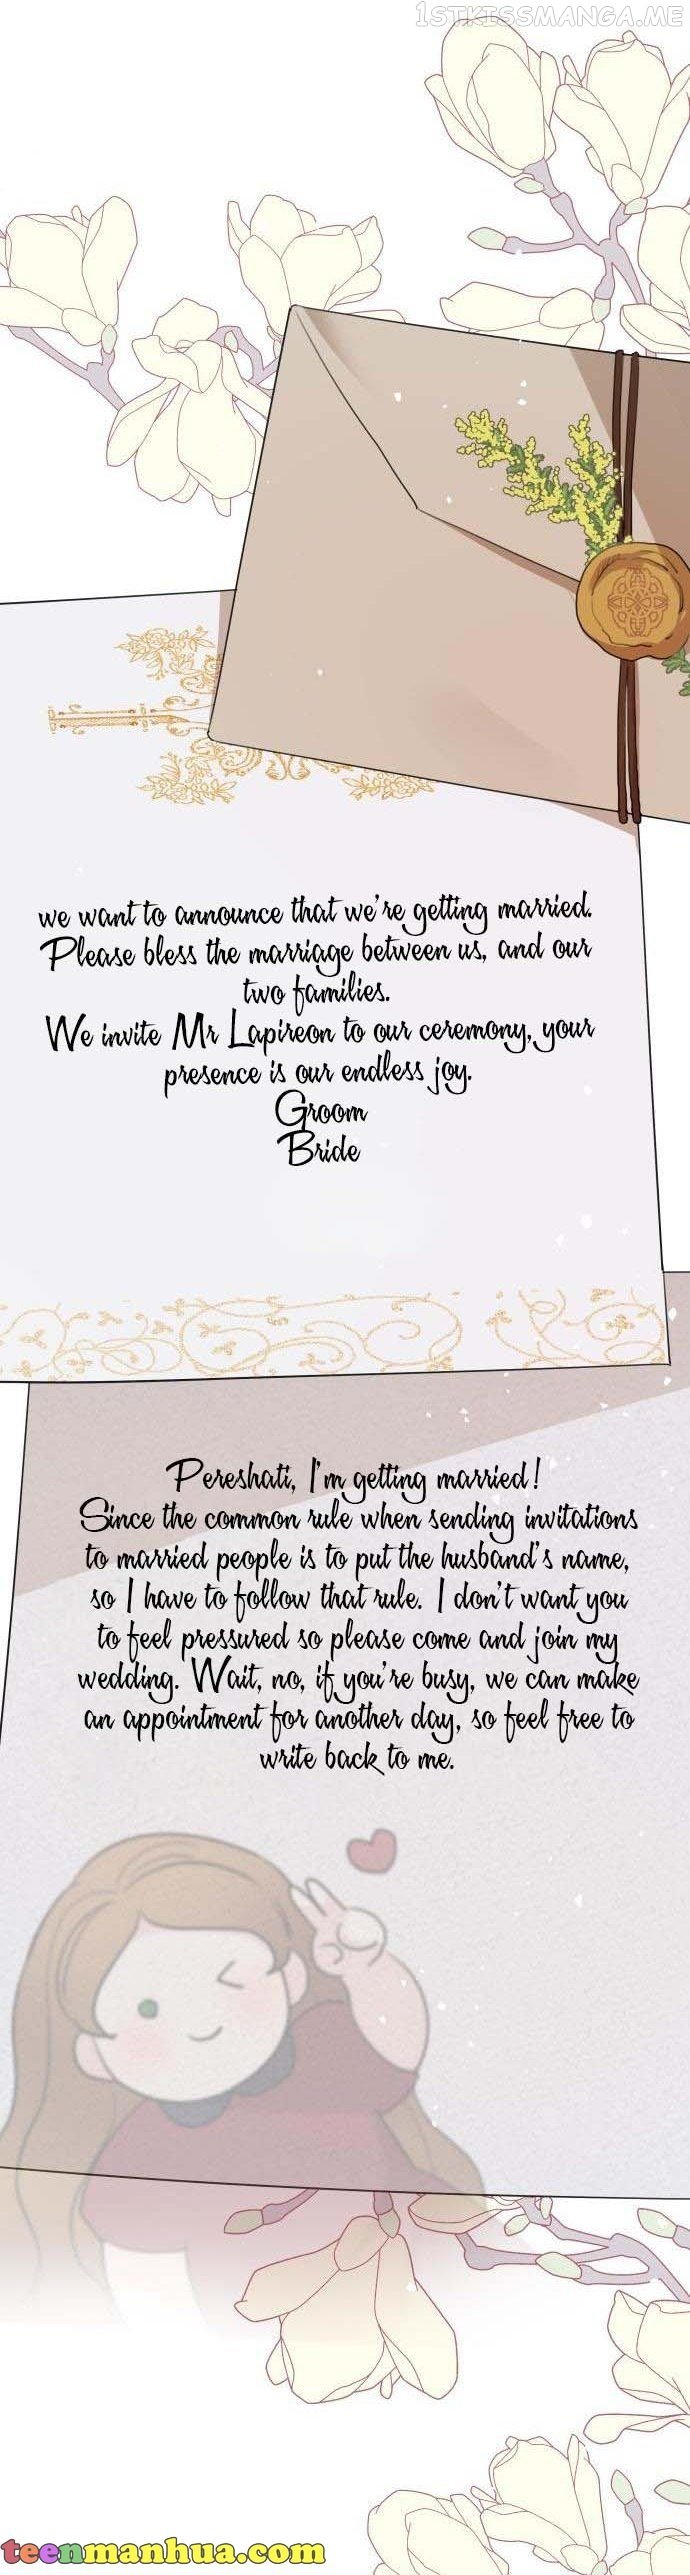 1STKISSMANGA.ME
we want to announce that we're getting married.
Please bless the marriage between us, and our
two families.
We invite Mr Lapireon to our ceremony, your
presence is our endless joy.
Groom
Bride
Pereshati, I'm getting married!
Since the common rule when sending invitations
to married people is to put the husband's name,
so I have to follow that rule. I don't want you
to feel pressured so please come and join my
wedding. Wait, no, if you're busy, we can make
an appointment for another day, so feel free to
write back to me.
teenmanhua.com